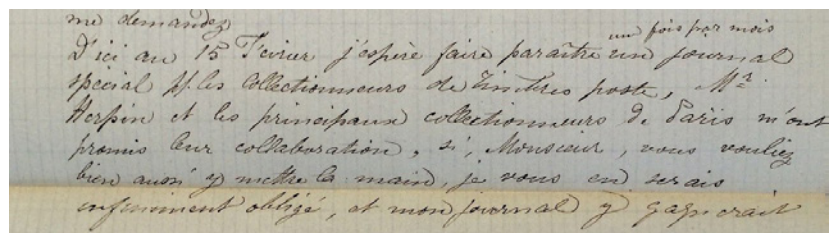 me demandez
une fois par mois
D'ici au 15 Fevrier j'espère faire paraître un journal
spécial pr. les Collectionneurs de Timbres poste, Mr.
Herpin et les principaux collectionneurs de Paris m'ont
promis leur collaboration, si, Monsieur, vous vouliez
bien aussi y mettre la main, je vous en serais
infiniment obligé, et mon journal y gagnerait